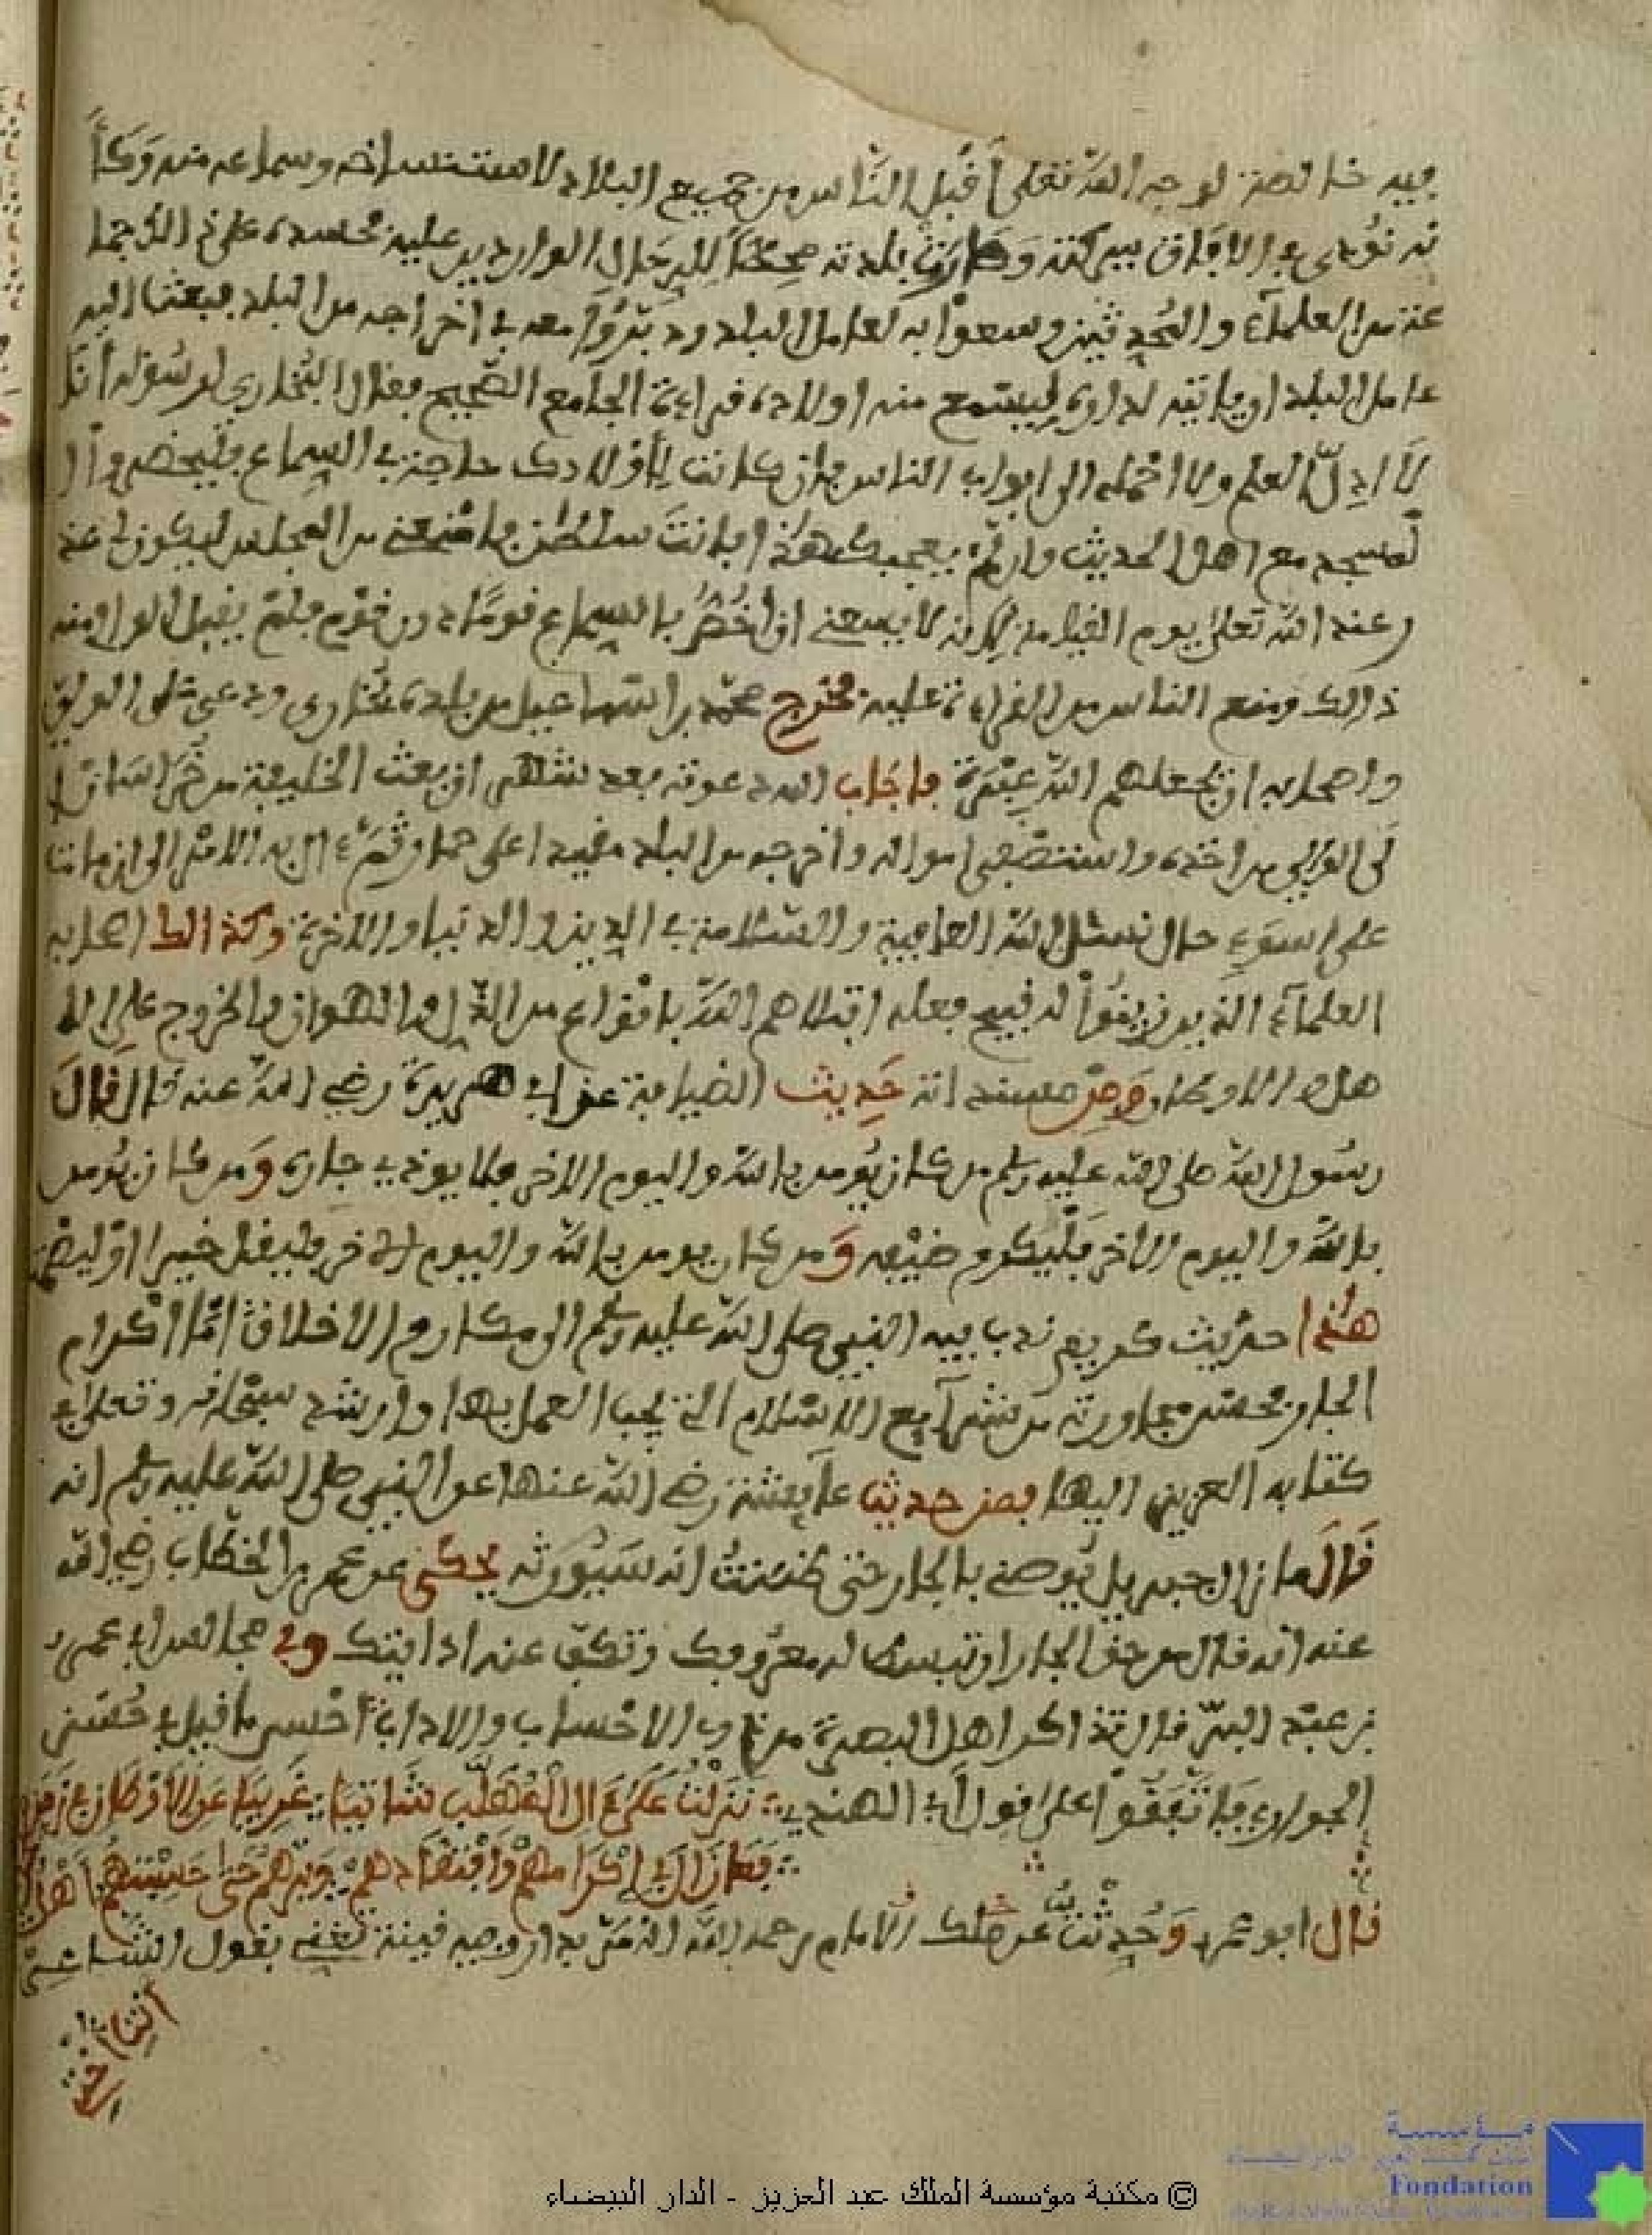 فيه خالصة لوجه الله تعلى أقبل الناس من جميع البلاد لاستنساخه وسماعه منه وكا
نه نودي في الافاق ببركته وصارت بلدته محطا للرجال الواردين عليه فحسده على ذلك جما
عة من العلماء والمحدثين وسعوا به لعامل البلد ودبروا معه في اخراجه من البلد فبعث اليه
عامل البلد ان ياتيه لداره ليسمع منه اولاده قراءة الجامع الصحيح فقال البخاري لرسوله أنا
لا اذل العلم ولا احمله الى ابواب الناس فان كانت لأولادك حاجة في السماع فليحضروا ا
لمسجد مع اهل الحديث وان لم يعجبك هذا فانت سلطان فامنعني من المجلس ليكون لي عذ
ر عند الله تعلى يوم القيامة لأنه لا يسعني ان أخص بالسماع قوما دون قوم فلم يقبل الوالي منه
ذلك ومنع الناس من القراءة عليه فخرج محمد بن اسماعيل من بلده بخارى ودعى على الوالي
واصحابه ان يجعلهم الله عبرة فاجاب الله دعوته بعد شهر ان بعث الخليفة من خراسان ا
لى الوالي من اخذه واستصفى امواله واخرجه من البلد مقيدا على حمار ثم ءال به الامر الى ان مات
على اسوء حال نسئل الله العافية والسلامة في الدين والدنيا والاخرة وكذالك اصحابه
العلماء الذين زيفوا له قبيح فعله ابتلاهم الله بانواع من الذل والهوان والخروج على الا
هل والاوطان ومن مسنداته حديث الضيافة عن ابي هريرة رضي الله عنه قال قال
رسول الله صلى الله عليه وسلم من كان يومن بالله واليوم الاخر فلا يوذي جاره ومن كان يومن
بالله واليوم الاخر فليكرم ضيفه ومن كان يومن بالله واليوم الاخر فليقل خيرا او ليصمت
هذا حديث كريم ندب فيه النبي صلى الله عليه وسلم الى مكارم الاخلاق اما اكرام
الجار فحسن مجاورته من شرآيع الاسلام التي يجب العمل بها وارشد سبحانه وتعلى في
كتابه العزيز اليها فمن حديث عايشة رضي الله عنها عن النبي صلى الله عليه وسلم انه
قال ما زال جبريل يوصني بالجار حتى ظننت انه سيورثه يحكى عن عمر بن الخطاب رضي الله
عنه انه قال من حق الجار ان تبسط له معروفك وتكف عنه اذايتك وفي مجالس ابي عمر
بن عبد البر قال تذاكر اهل البصرة من ذوي الاحساب والاداب أحسن ما قيل في حسن
الجوار فاتفقوا على قول أبي الهندي نزلت على ءال المهلب شاتيا غريبا عن الاوطان في زمن
فما زال بي اكرامهم وافتقادهم وبرهم حتى حسبتهم اهلي
قال ابو عمر وحدثت عن ملك الامام رحمه الله انه مر بدار وفيه قينة تغني بقول الشاعر
© مكتبة مؤسسة الملك عبد العزيز - الدار البيضاء
مؤسسة
Fondation